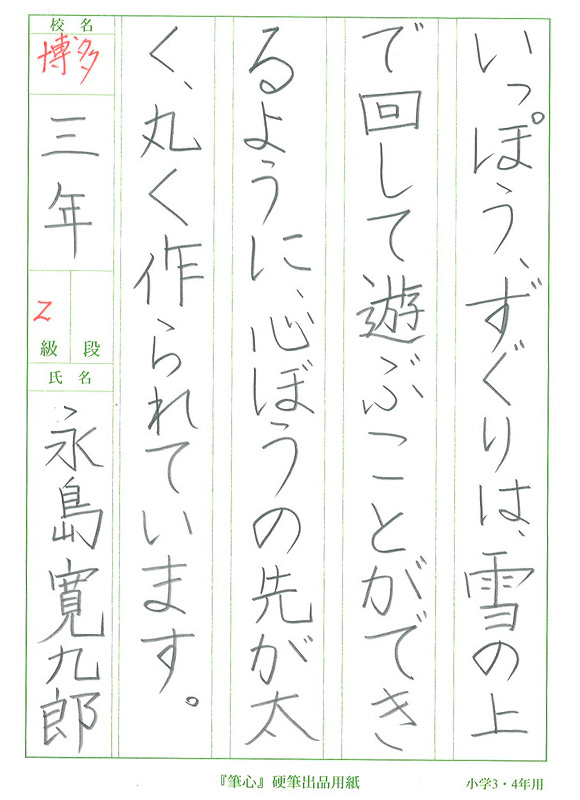 いっぽう、ずぐりは、雪の上
で回して遊ぶことができ
るように、心ぼうの先が太
く、丸く作られています。
校名
博多
三年
段
級
2
氏名
永島寛九郎
『筆心』硬筆出品用紙
小学3・4年用